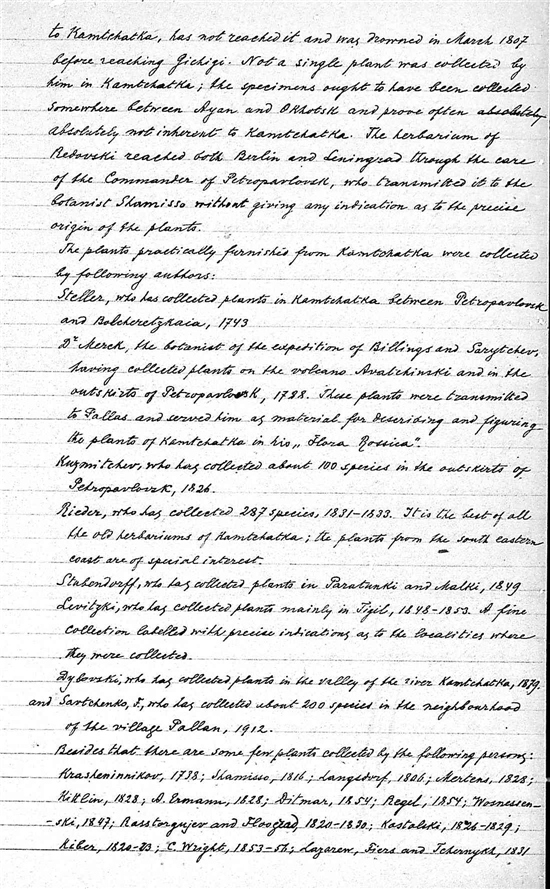 to Kamtchatka, has not reached it and was drowned in March 1807
before reaching Gichigi. Not a single plant was collected by
him in Kamtchatka; the specimens ought to have been collected
somewhere between Ayan and Okhotsk and prove often absolutely
absolutely not inherent to Kamtchatka. The herbarium of
Redovski reached both Berlin and Leningrad through the care
of the Commander of Petropavlovsk, who transmitted it to the
botanist Shamisso without giving any indication as to the precise
origin of the plants.
The plants practically furnished from Kamtchatka were collected
by following authors:
Steller, who has collected plants in Kamtchatka between Petropavlovsk
and Bolcheretzkaia, 1743
Dr Merck, the botanist of the expedition of Billings and Sarytchev,
having collected plants on the volcano Avatchinski and in the
outskirts of Petropavlovsk, 1788. These plants were transmitted
to Pallas and served him as material for describing and figuring
the plants of Kamtchatka in his „Flora Rossica".
Kuzmitchev, who has collected about 100 species in the outskirts of
Petropavlovsk, 1826.
Rieder, who has collected 287 species, 1831-1833. It is the best of all
the old herbariums of Kamtchatka; the plants from the south eastern
coast are of special interest.
Stubendorff, who has collected plants in Paratunki and Malki, 1849
Levitzki, who has collected plants mainly in Tigil, 1848-1853. A fine
collection labelled with precise indications as to the localities where
they were collected.
Dybovski, who has collected plants in the valley of the river Kamtchatka, 1879.
and Savtchenko, F., who has collected about 200 species in the neighbourhood
of the village Pallan, 1912.
Besides that there are some few plants collected by the following persons:
Krasheninnikov, 1738; Shamisso, 1816; Langsdorf, 1806; Mertens, 1828;
Kitlin, 1828; A. Ermann, 1828; Ditmar, 1854; Regel, 1854; Wosnessen-
-ski, 1847; Rasstorgujev and 1820-1830; Kastalski, 1826-1829;
Kiber, 1820-23; C. Wright, 1853-56; Lazarew, Fiers and Tchernykh, 1831